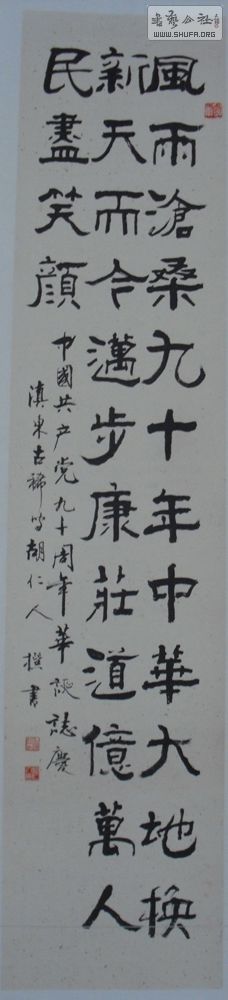 書藝公社
WWW.SHUFA.ORG
風雨滄桑九十年中華大地换
新天而今邁步康莊道億萬人
民盡笑顔
中國共产党九十周年華誕誌慶
滇東古稀叟胡仁人撰書